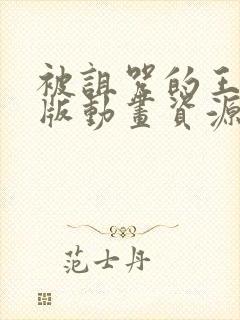 被詛咒的王
版動畫資源
范士丹